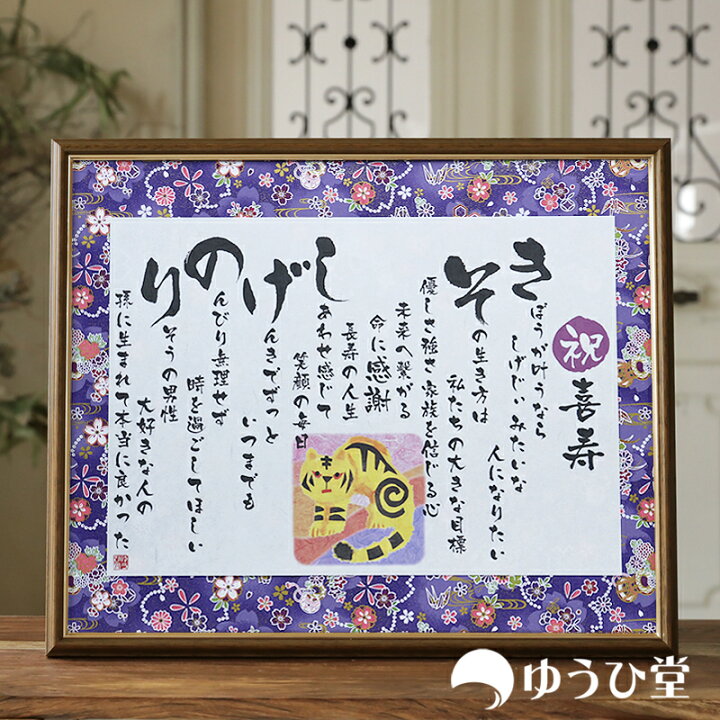 祝 喜寿
きぼうが叶うなら
しげじぃみたいな
人になりたい
その生き方は
私たちの大きな目標
優しさ強さ家族を信じる心
未来へ繋がる
命に感謝
長寿の人生
しあわせ感じて
笑顔の毎日
げんきでずっと
いつまでも
のんびり無理せず
時を過ごしてほしい
りそうの男性
大好きな人の
孫に生まれて本当に良かった
ゆうひ堂